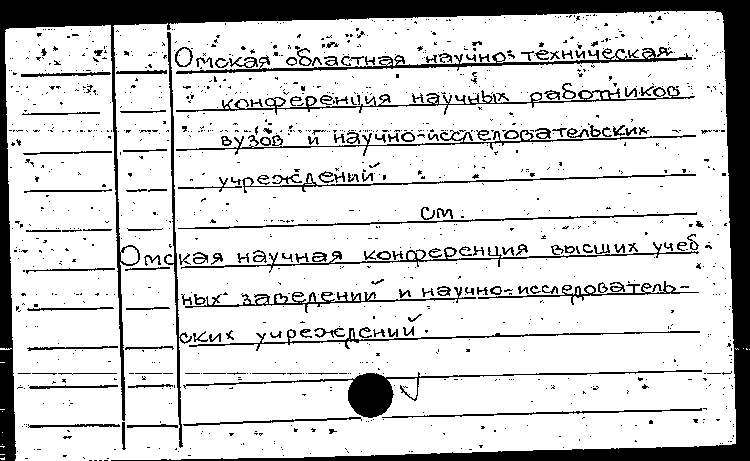 Омская областная научно-техническая
конференция научных работников
вузов и научно-исследовательских
учреждений.
см.
Омская научная конференция высших учеб-
ных заведений и научно-исследователь-
ских учреждений.